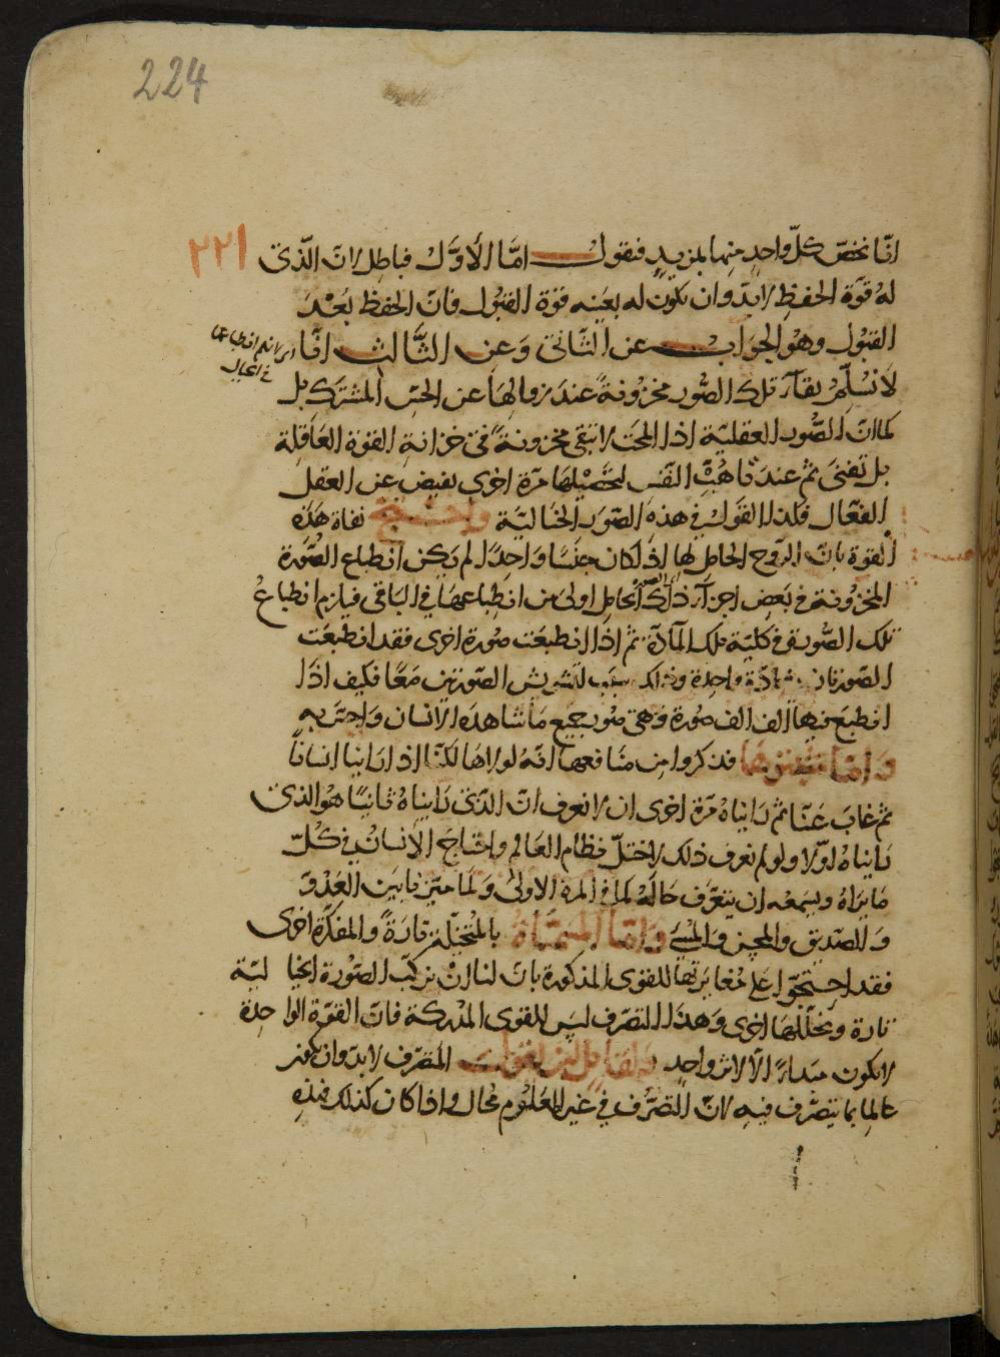 224
٢٢١
انّا نخصّ كلّ واحد منهما بمزيد فنقول امّا الأوّل فباطل لانّ الّذى
له قوّة الحفظ لابدّ وان يكون له بعينه قوّة القبول فانّ الحفظ بعد
القبول وهو الجواب عن الثّانى وعن الثّالث انّا
لا نسلّم بقاء تلك الصّور مخزونة عند زوالها عن الحسّ المشترك بل
كما انّ الصّور العقليّة اذا امّحت لا تبقى مخزونة فى خزانة القوّة العاقلة
بل تفنى ثم عند تأهّب النّفس لتحصيلها مرّة اخرى يفيض عن العقل
الفعّال فكذا القول فى هذه الصّور الخياليّة واحتج نفاة هذه
القوة بانّ الرّوح الحامل لها اذا كان جسما واحدا لم يكن انطباع الصّورة
المخزونة فى بعض اجزاء ذلك الحامل اولى من انطباعها فى الباقى فيلزم انطباع
تلك الصّورة فى كليّة تلك المادّة ثم اذا انطبعت صورة اخرى فقد انطبعت
الصّورتان مادّة واحدة وذلك سبب لتشويش الصّورتين معا فكيف اذا
انطبع فيها الف الف صورة وهى صور جميع ما شاهده الانسان واحسّ به
وامّا فقد ذكروا من منافعها انّه لولاها لكنّا اذا رأينا انسانا
ثم غاب عنّا ثم رأيناه مرّة اخرى ان لا نعرف انّ الّذى رأيناه ثانيا هو الذى
رأيناه اوّلا ولو لم نعرف ذلك لاختلّ نظام العالم واحتاج الأنسان فى كلّ
ما يراه ويسمعه ان يتعرّف حاله كما فى المرة الاولى ولما ميّز ما بين العدوّ
والصّديق والمحسن والمسئ وامّا المسمّاة بالمتخيّلة تارة والمفكّرة اخرى
فقد احتجّوا على مغايرتها للقوى المذكورة بانّ لنا ان نركّب الصّورة الخيا ليّة
تارة ونحلّلها اخرى وهذا التصرّف ليس للقوى المدركة فانّ القوّة الوا حدة
لا يكون مبدأ الّا لاثر واحد ولقائل ان يقول المتصرّف لابدّ وان يكون
عالما بما يتصرّف فيه لانّ التصرّف فى غير المعلوم محال واذا كان كذلك فهذه